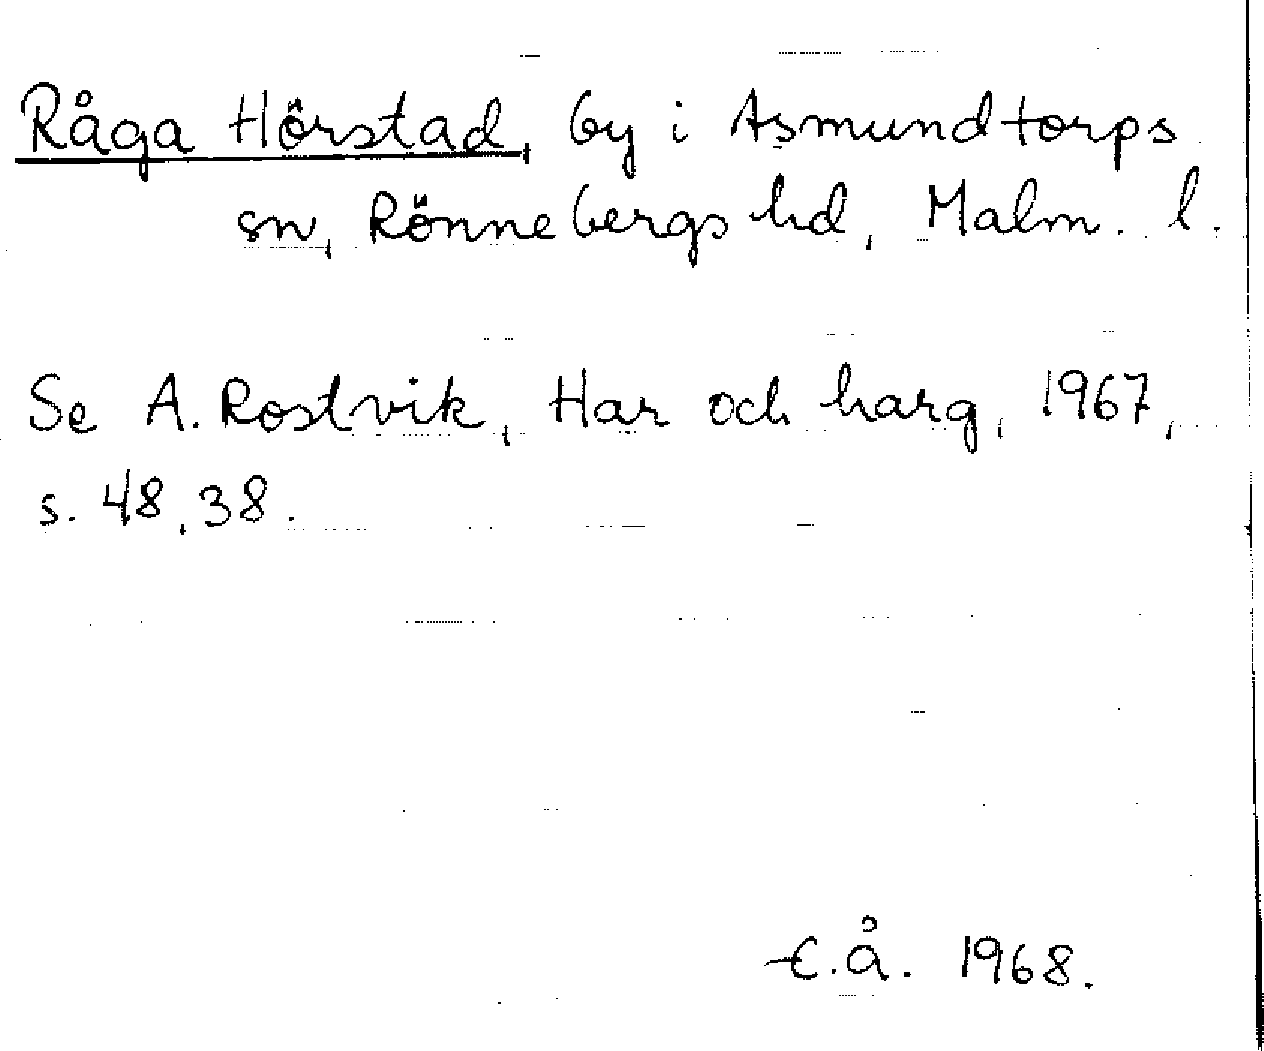 Råga Hörstad, by i Asmundtorps
sn, Rönnebergs hd, Malm. l.
Se A. Rostvik, Har och harg, 1967,
s. 48, 38.
E.å. 1968.